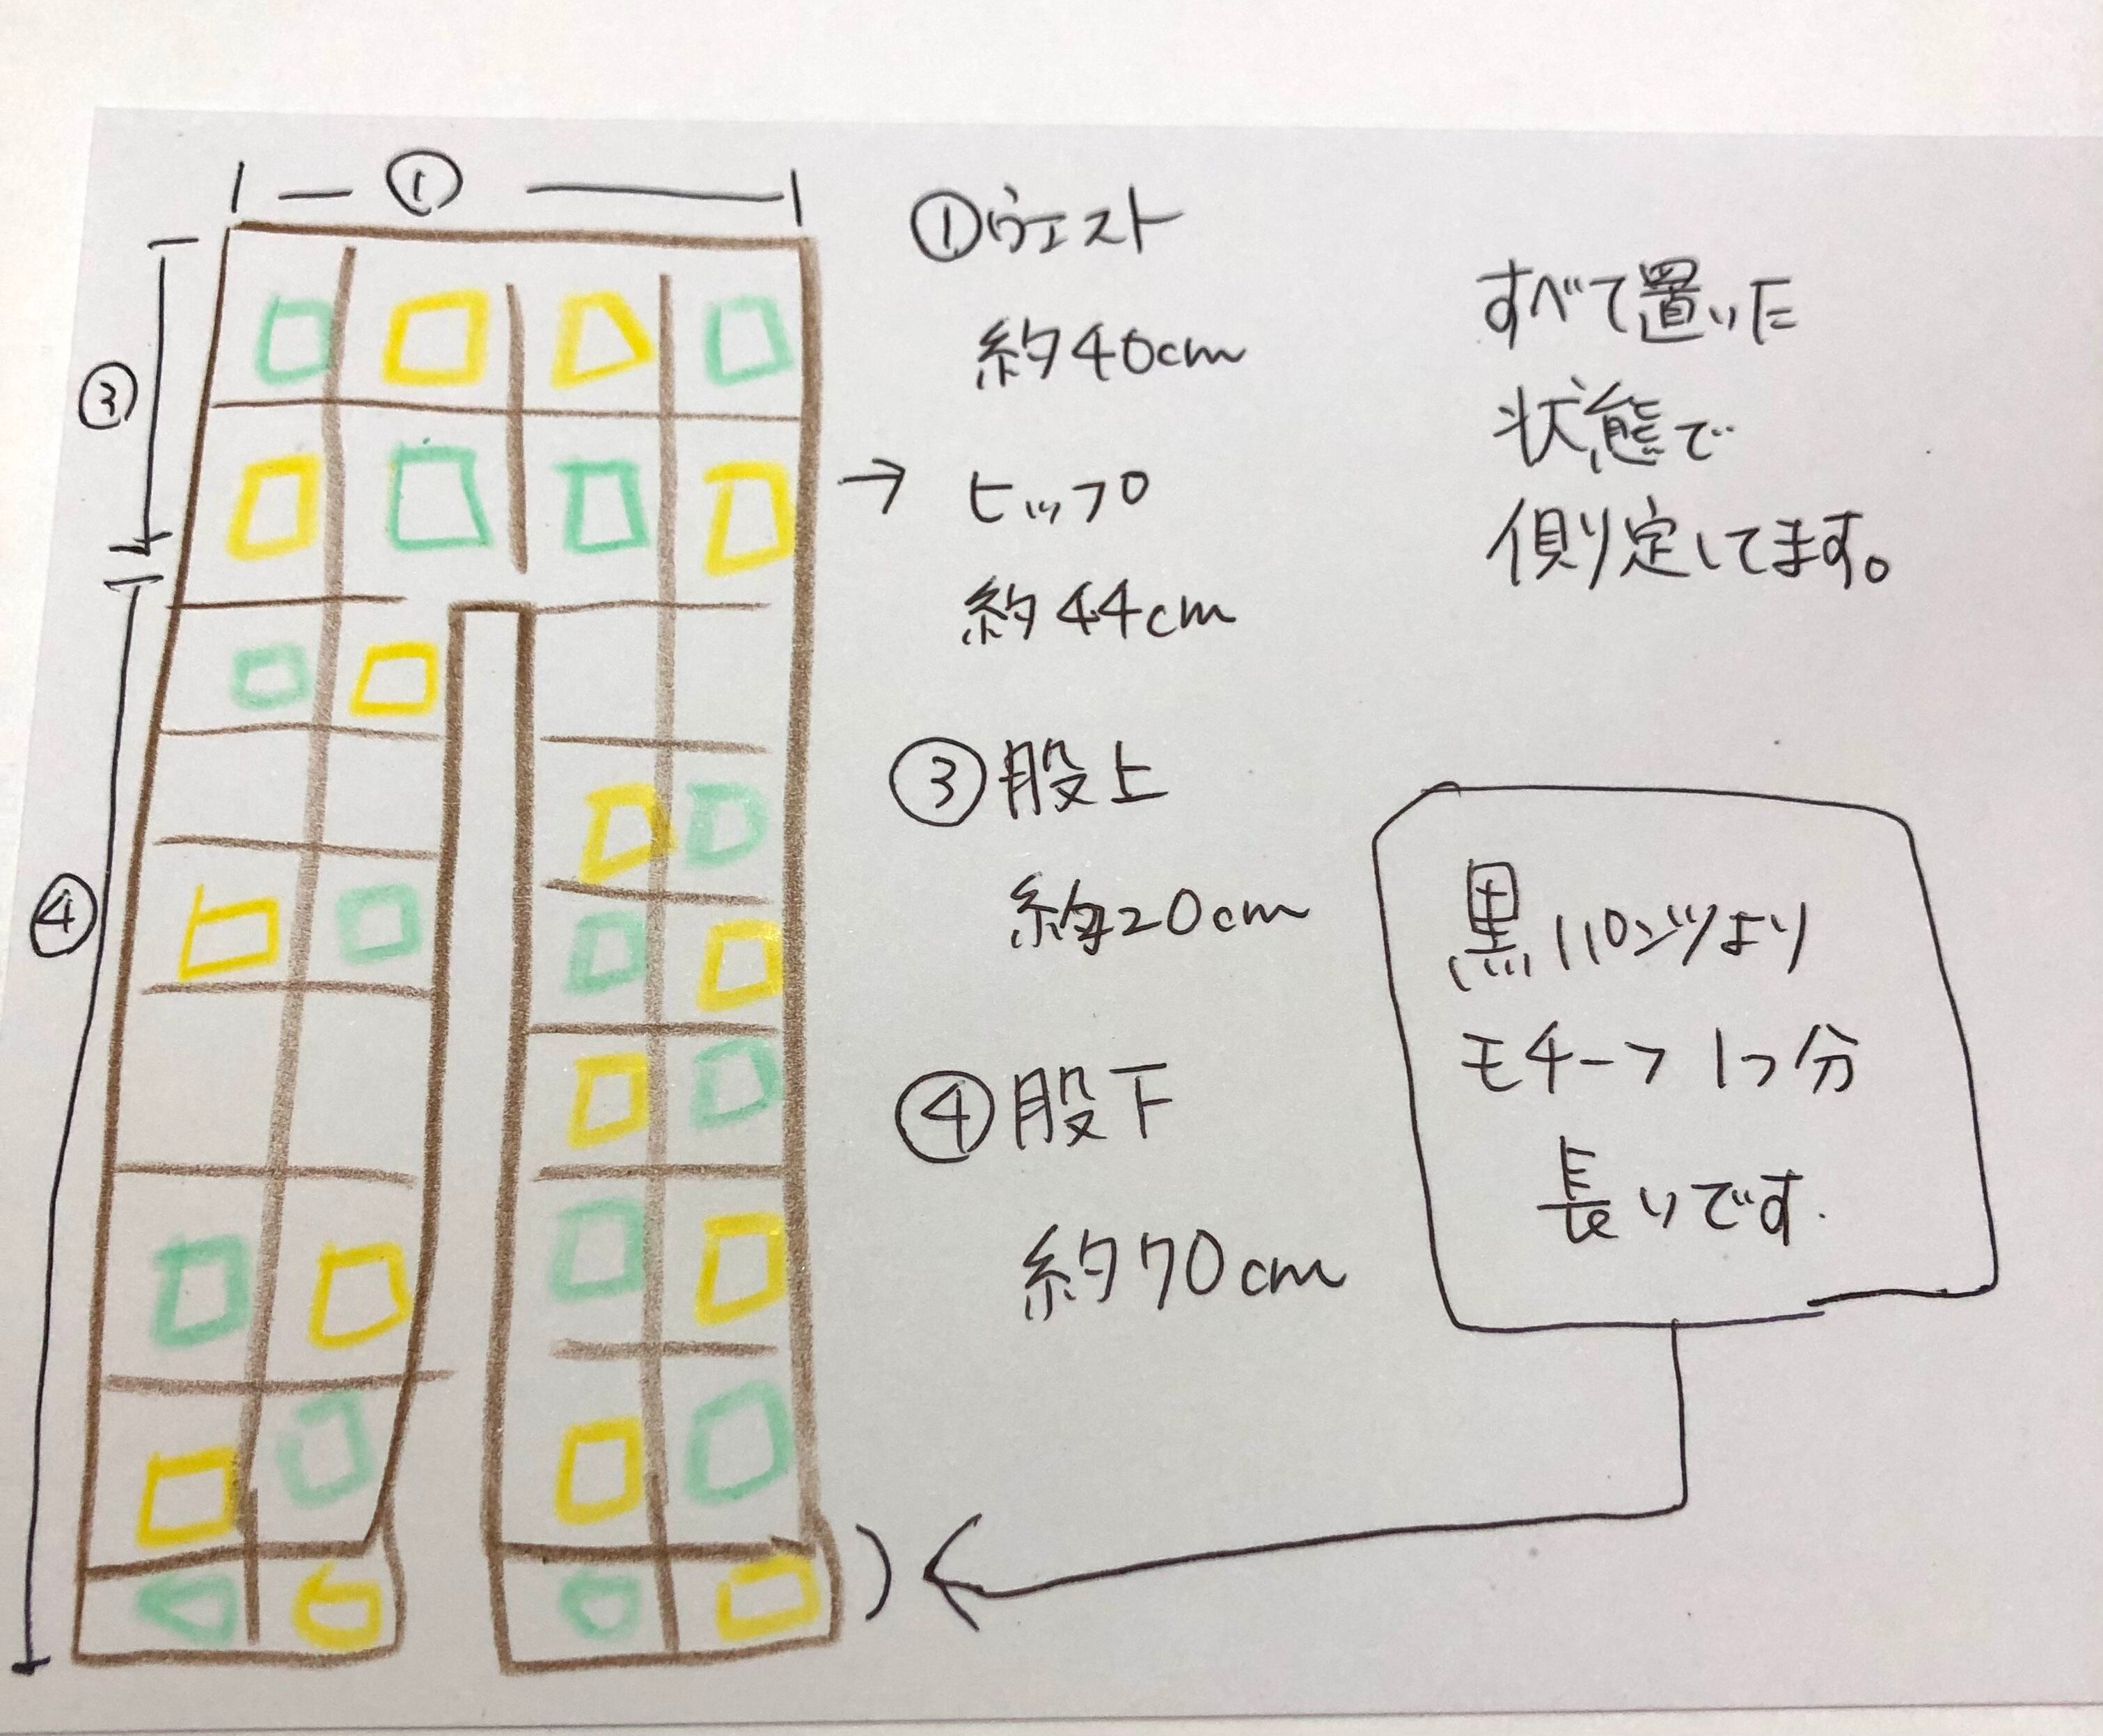 ①
③
④
①ウェスト
約40cm
→ ヒップ
約44cm
③股上
約20cm
④股下
約70cm
すべて置いた
状態で
測定してます。
黒パンツより
モチーフ1つ分
長いです.